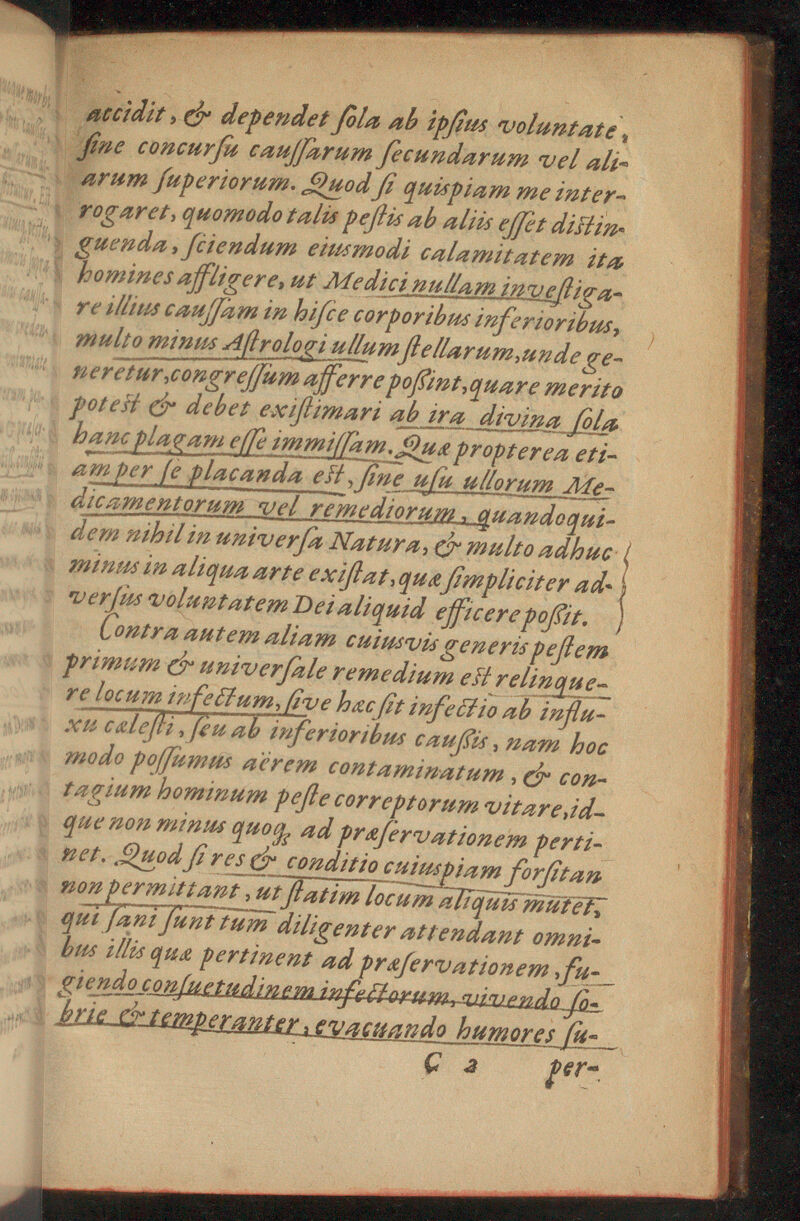 accidit, & dependet ſola ab ipſius voluntate,
ſine concurſu cauſſarum ſecundarum vel ali-
arum ſuperiorum. Quod ſi quispiam me inter-
rogaret, quomodo talis peſtis ab aliis eſſet diſtin-
guenda, ſciendum eiusmodi calamitatem ita
homines affligere, ut Medici nullam inveſtiga-
re illius cauſſam in hiſce corporibus inferioribus,
multo minus Aſtrologi ullum ſtellarum, unde ge-
neretur, congreſſum afferre poſſint, quare merito
poteſt & debet exiſtimari ab ira divina ſola
hanc plagam eſſe immiſſam. Quæ propterea eti-
am per ſe placanda eſt, ſine uſu ullorum Me-
dicamentorum vel remediorum, quandoqui-
dem nihil in univerſa Natura, & multo adhuc
minus in aliqua arte exiſtat, quæ ſimpliciter ad-
verſus voluntatem Dei aliquid efficere poſſit.
Contra autem aliam cuiusvis generis peſtem
primum & univerſale remedium eſt relinque-
re locum infectum, ſive hæc ſit infectio ab influ-
xu cæleſti, ſeu ab inferioribus cauſſis, nam hoc
modo poſſumus aërem contaminatum, & con-
tagium hominum peſte correptorum vitare, id-
que non minus quoq, ad præſervationem perti-
net. Quod ſi res & conditio cuiuspiam forſitan
non permittant, ut ſtatim locum aliquis mutet,
qui ſani ſunt tum diligenter attendant omni-
bus illis quæ pertinent ad præſervationem, fu-
giendo conſuetudinem infectorum, vivendo ſo-
brie & temperanter, evacuando humores ſu-
C 2 per-